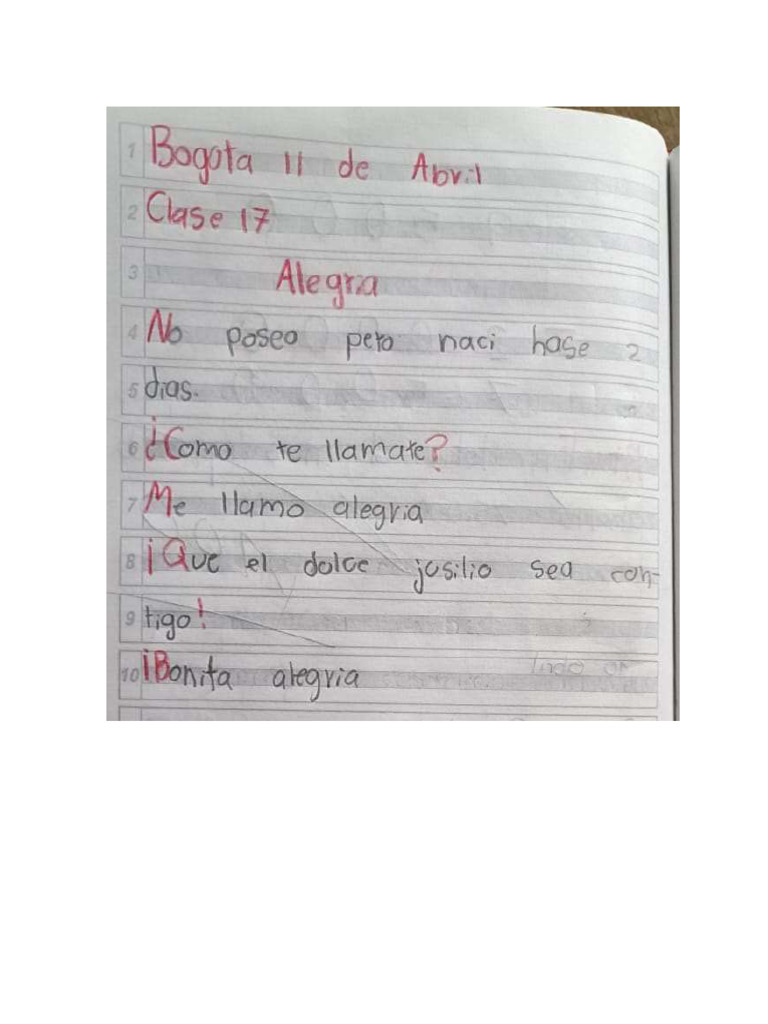 1 Bogota 11 de Abril
2 Clase 17
3 Alegria
4 No poseo pero naci hase 2
5 dias.
6 ¿Como te llamate?
7 Me llamo alegria
8 ¡Que el dolce josilio sea con-
9 tigo!
10 ¡Bonita alegria